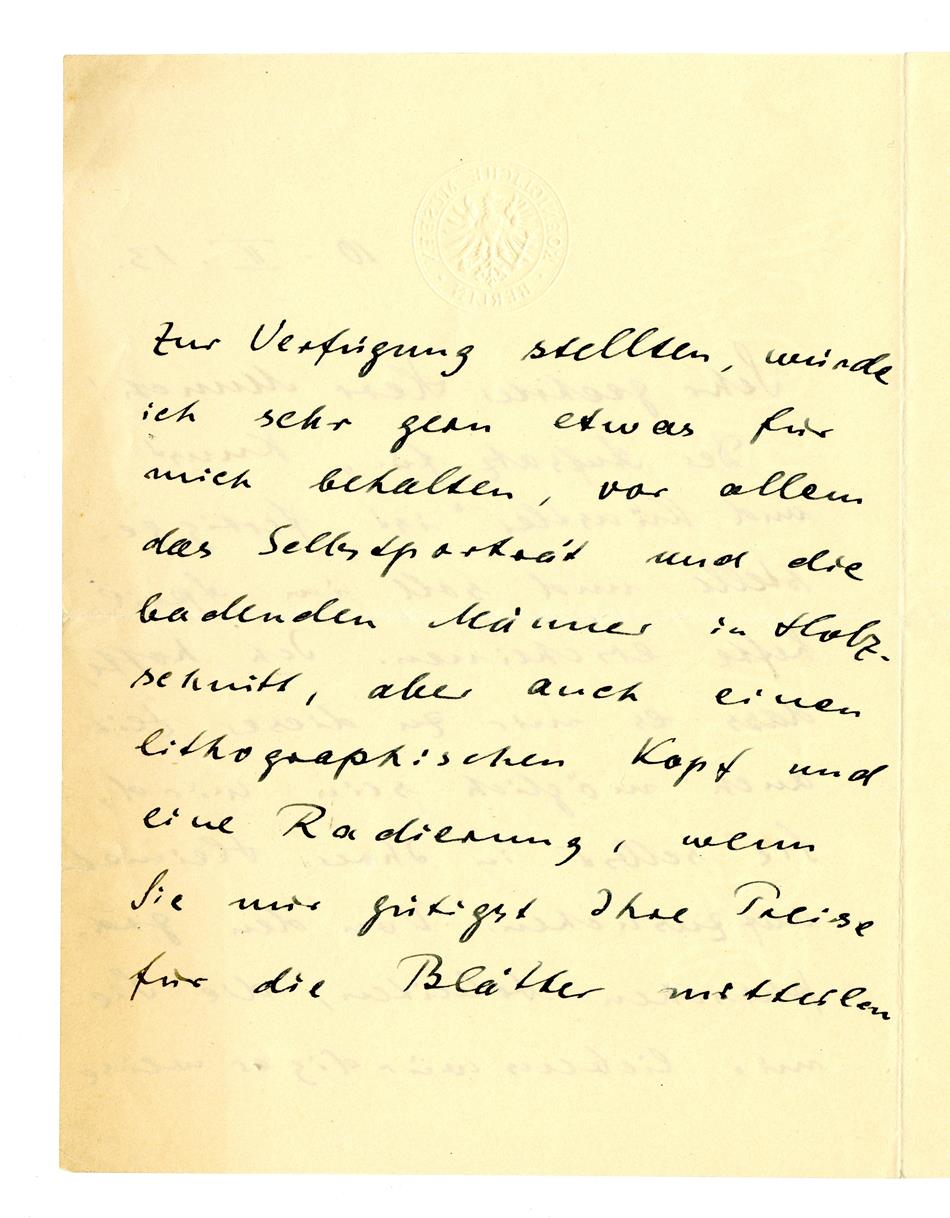 KOENIGLICHE MUSEEN · BERLIN ·
zur Verfügung stellten, würde
ich sehr gern etwas für
mich behalten, vor allem
das Selbstporträt und die
badenden Männer in Holz-
schnitt, aber auch einen
lithographischen Kopf und
eine Radierung, wenn
Sie mir gütigst Ihre Preise
für die Blätter mitteilen